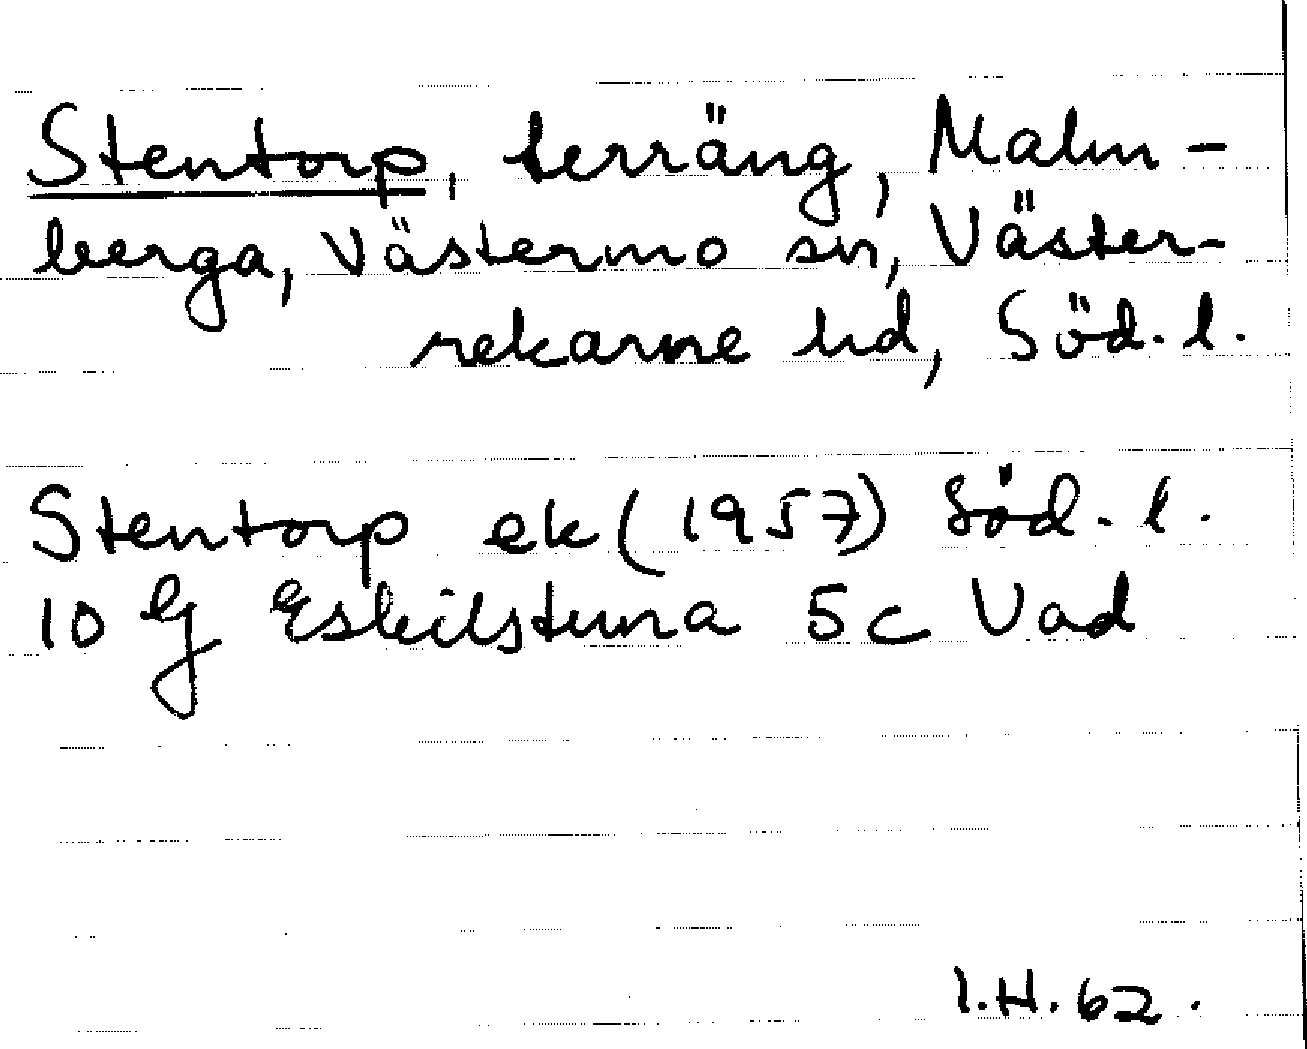 Stentorp, terräng, Malm-
berga, Västermo sn, Väster-
rekarne hd, Söd. l.
Stentorp ek (1957) Söd. l.
10 G Eskilstuna 5c Vad
I.H. 62.